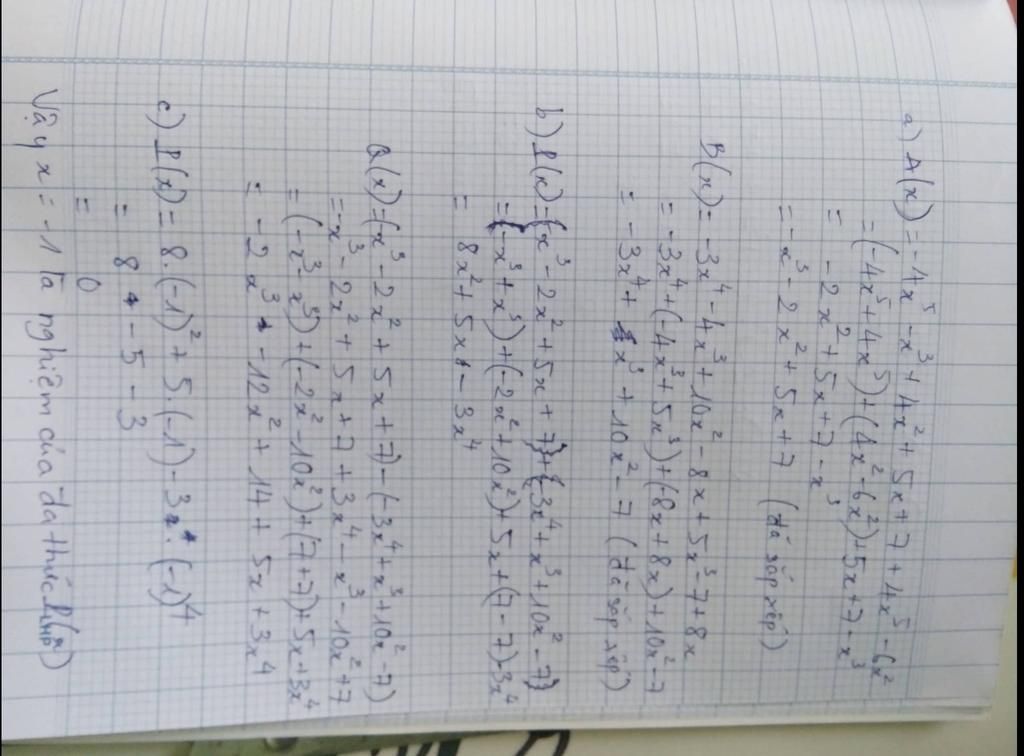 a) A(x) = -4x⁵ - x³ + 4x² + 5x + 7 + 4x⁵ - 6x²
= (-4x⁵ + 4x⁵) + (4x² - 6x²) + 5x + 7 - x³
= -2x² + 5x + 7 - x³
= -x³ - 2x² + 5x + 7 (đã sắp xếp)
B(x) = -3x⁴ - 4x³ + 10x² - 8x + 5x³ - 7 + 8x
= -3x⁴ + (-4x³ + 5x³) + (-8x + 8x) + 10x² - 7
= -3x⁴ + x³ + 10x² - 7 (đã sắp xếp)
b) P(x) = (-x³ - 2x² + 5x + 7) + (-3x⁴ + x³ + 10x² - 7)
= (-x³ + x³) + (-2x² + 10x²) + 5x + (7 - 7) - 3x⁴
= 8x² + 5x - 3x⁴
Q(x) = (-x³ - 2x² + 5x + 7) - (-3x⁴ + x³ + 10x² - 7)
= -x³ - 2x² + 5x + 7 + 3x⁴ - x³ - 10x² + 7
= (-x³ - x³) + (-2x² - 10x²) + (7 + 7) + 5x + 3x⁴
= -2x³ - 12x² + 14 + 5x + 3x⁴
c) P(x) = 8.(-1)² + 5.(-1) - 3.(-1)⁴
= 8 - 5 - 3
= 0
Vậy x = -1 là nghiệm của đa thức P(x)